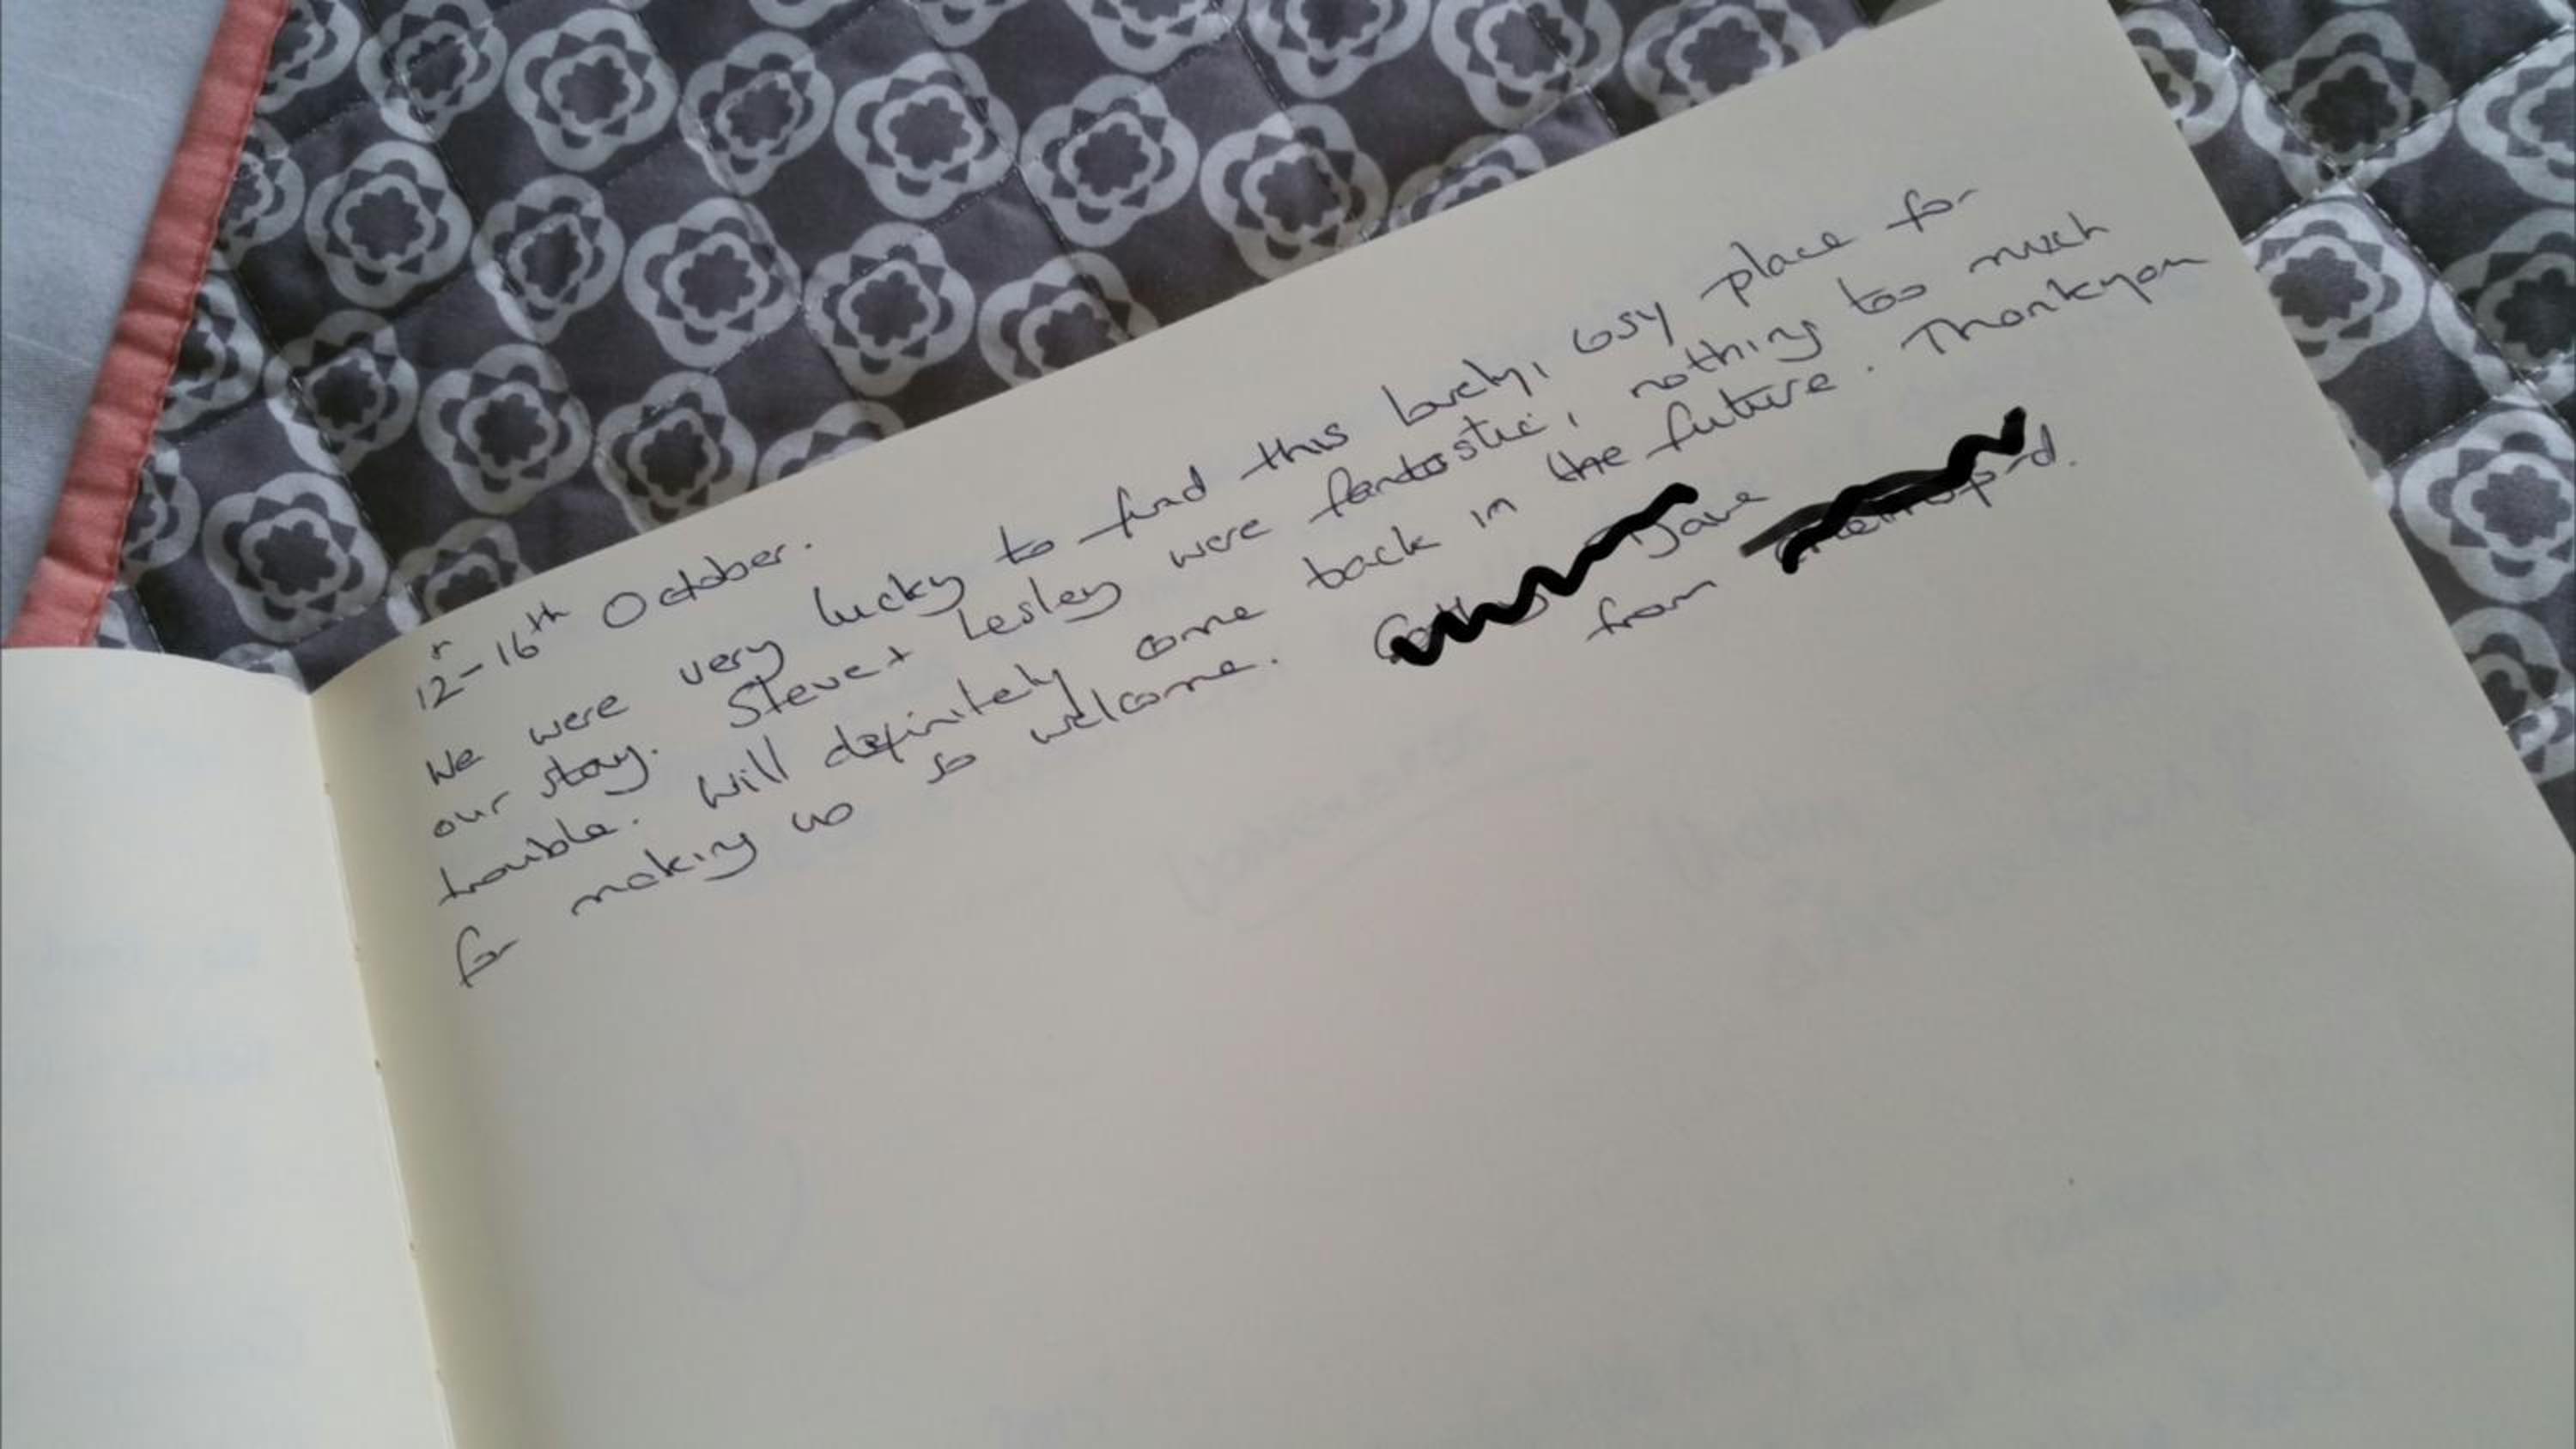 12th-16th October.
We were very lucky to find this lovely, cosy place for
our stay. Steve + Lesley were fantastic, nothing too much
trouble. Will definitely come back in the future. Thankyou
for making us so welcome. Dave
from